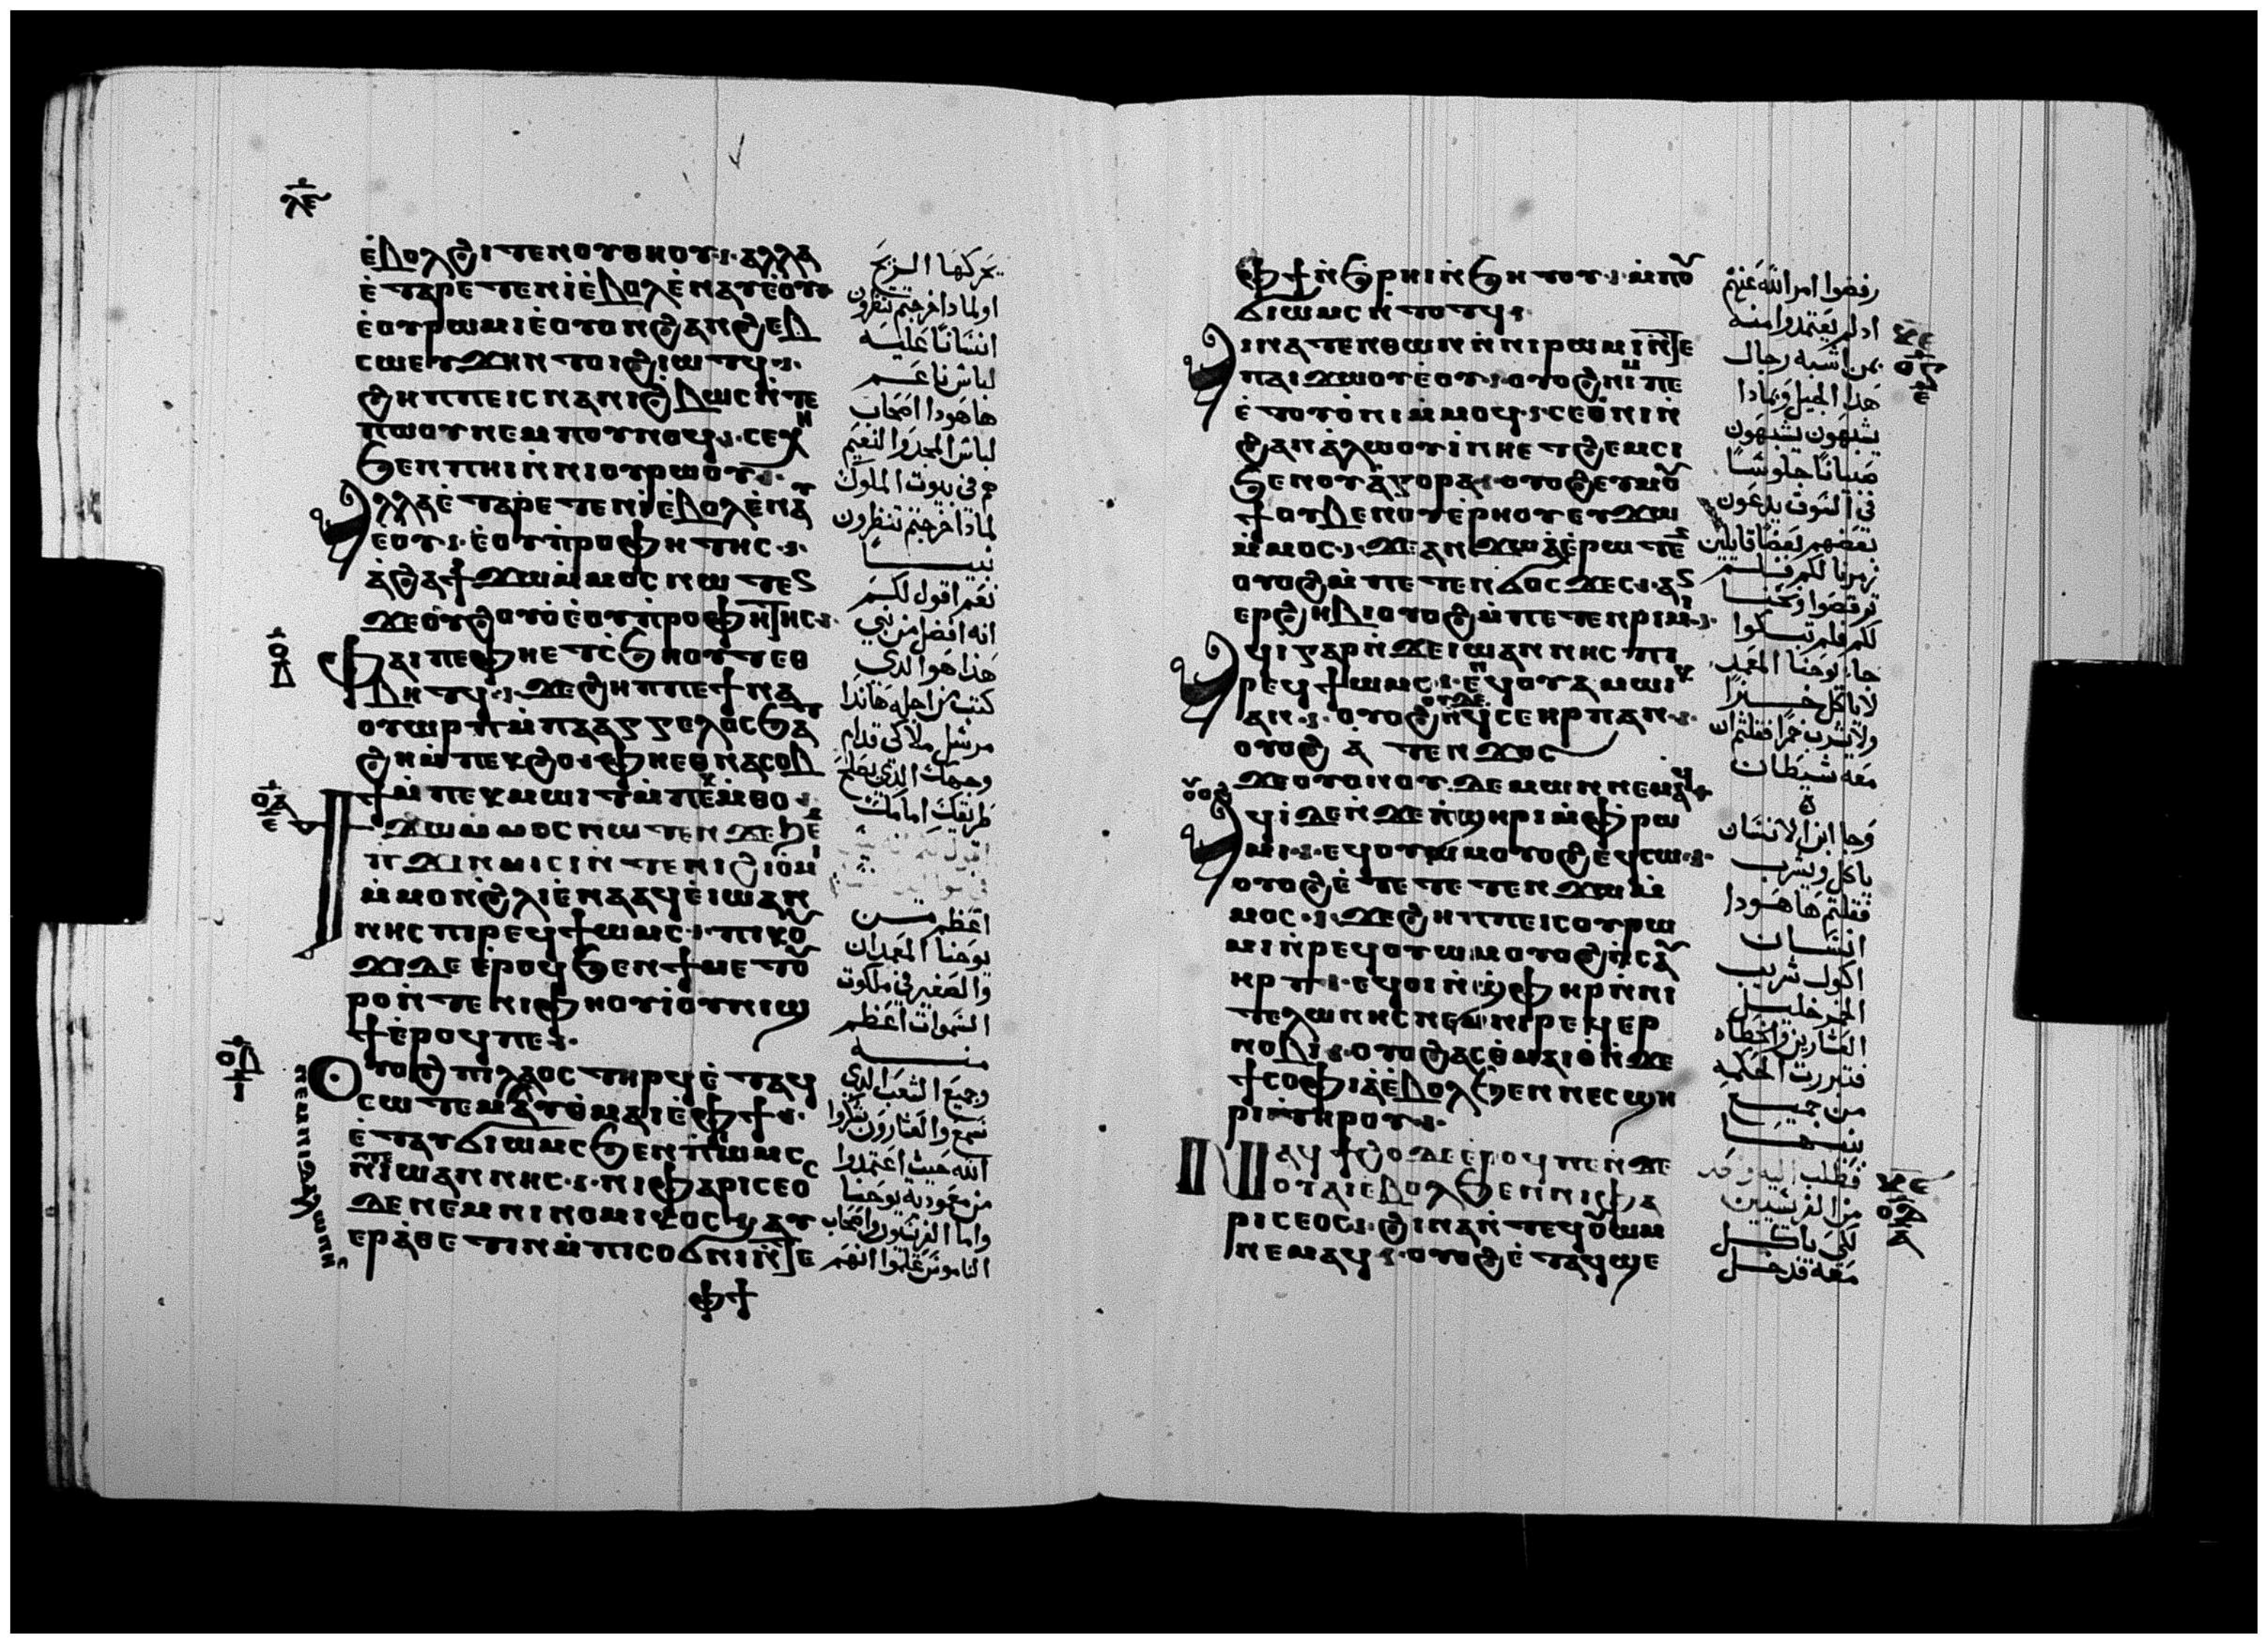 ⲗ̅ⲉ̅
ⲉⲃⲟⲗϩⲓⲧⲉⲛⲟⲩⲑⲏⲟⲩ· ⲁⲗⲗⲁ
ⲉⲧⲁⲣⲉⲧⲉⲛⲓ̀ⲉ̀ⲃⲟⲗⲉ̀ⲛⲁⲩⲉ̀ⲟⲩ
ⲉ̀ⲟⲩⲣⲱⲙⲓⲉ̀ⲟⲩⲟⲛϩⲁⲛϩⲉⲃ
ⲥⲱⲉⲩϫⲏⲛⲧⲟⲓϩⲓⲱⲧϥ·
ϩⲏⲡⲡⲉⲓⲥⲛⲁⲛⲓϩⲃⲱⲥⲛ̀ⲧⲉ
ⲡⲱⲟⲩⲛⲉⲙⲡⲟⲩⲛⲟϥ· ⲥⲉⲭⲏ
ϧⲉⲛⲡⲏⲓⲛ̀ⲛⲓⲟⲩⲣⲱⲟⲩ·
ⲁⲗⲗⲁⲉ̀ⲧⲁⲣⲉⲧⲉⲛⲓ̀ⲉ̀ⲃⲟⲗⲉ̀ⲛⲁⲩ
ⲉⲟⲩ· ⲉ̀ⲟⲩⲡ̀ⲣⲟⲫⲏⲧⲏⲥ·
ⲁ̀ϩⲁϯϫⲱⲙ̀ⲙⲟⲥⲛⲱⲧⲉⲛ
ϫⲉⲟ̀ⲩϩⲟⲩⲟ̀ⲉ̀ⲟⲩⲡ̀ⲣⲟⲫⲏⲧⲏⲥ·
ⲫⲁⲓⲡⲉⲫⲏⲉⲧⲥ̀ϧⲏⲟⲩⲧⲉⲑ
ⲃⲏⲧϥ· ϫⲉϩⲏⲡⲡⲉϯⲛⲁ
ⲟⲩⲱⲣⲡⲙ̀ⲡⲁⲁⲅⲅⲉⲗⲟⲥϧⲁ
ϩⲏⲙ̀ⲡⲉⲕϩⲟ· ⲫⲏⲉⲑⲛⲁⲥⲟⲃ
ϯⲙ̀ⲡⲉⲕⲙⲱⲓⲧⲙ̀ⲡⲉⲕⲙ̀ⲑⲟ·
ϯϫⲱⲙ̀ⲙⲟⲥⲛⲱⲧⲉⲛϫⲉϧⲉ
ⲛ̀ϫⲓⲛⲙⲓⲥⲓⲛ̀ⲧⲉⲛⲓϩⲓⲟ̀ⲙⲓ
ⲙ̀ⲙⲟⲛϩ̀ⲗⲓⲉ̀ⲛⲁⲁϥⲉ̀ⲓⲱⲁⲛ
ⲛⲏⲥⲡⲓⲣⲉϥϯⲱⲙⲥ· ⲡⲓⲕⲟⲩ
ϫⲓⲇⲉⲉ̀ⲣⲟϥϧⲉⲛϯⲙⲉⲧⲟⲩ
ⲣⲟⲛ̀ⲧⲉⲛⲓⲫⲏⲟⲩⲓ̀ⲟⲩⲛⲓϣ
ϯⲉ̀ⲣⲟϥⲡⲉ·
ⲟⲩⲟϩⲡⲓⲗⲁⲟⲥⲧⲏⲣϥⲉ̀ⲧⲁϥ
ⲥⲱⲧⲉⲙⲁⲩⲑ̀ⲙⲁⲓⲉ̀ⲫϯ·
ⲉ̀ⲧⲁⲩϭⲓⲱⲙⲥϧⲉⲛⲡⲓⲱⲙⲥ
ⲛ̀ⲧⲉⲓⲱⲁⲛⲛⲏⲥ· ⲛⲓⲫⲁⲣⲓⲥⲉⲟⲥ
ⲇⲉⲛⲉⲙⲛⲓⲛⲟⲙⲓⲕⲟⲥϣⲁⲩ
ⲉⲣⲁ̀ⲑⲉⲧⲓⲛⲙ̀ⲡⲓⲥⲟϭⲛⲓⲛ̀ⲧⲉ
ⲫϯ
ⲛⲉⲙⲛⲓⲧⲉⲗⲱⲛⲏⲥ
يحركها الريح
او لماذا خرجتم تنظرون
انسانا عليه
لباس ناعم
هاهودا اصحاب
لباس المجد والنعيم
هم في بيوت الملوك
لماذا خرجتم تنظرون
نبيا
نعم اقول لكم
انه افضل من نبي
هذا هو الذي
كتب من اجله هانذا
مرسل ملاكي قدام
وجهك الذي يصلح
طريقك امامك
اعظم من
يوحنا المعمدان
والصغير في ملكوت
السموات اعظم
منه
وجميع الشعب الذي
سمع والعشارون شكروا
الله حيث اعتمدوا
من معمودية يوحنا
واما الفريسيون واصحاب
الناموس علموا انهم
ⲫϯⲛ̀ϧ̀ⲣⲏⲓⲛ̀ϧⲏⲧⲟⲩ· ⲙ̀ⲡⲟⲩ
ϭⲓⲱⲙⲥⲛ̀ⲧⲟⲧϥ·
ⲁⲓⲛⲁⲧⲉⲛⲑⲱⲛⲛ̀ⲛⲓⲣⲱⲙⲓⲛ̀ⲧⲉ
ⲡⲁⲓϫⲱⲟⲩⲉ̀ⲟⲩ· ⲟⲩⲟϩⲛⲓⲙⲡⲉ
ⲉ̀ⲧⲟⲩⲟ̀ⲛⲓⲙ̀ⲙⲟϥ· ⲥⲉⲟ̀ⲛⲓⲛ̀
ϩⲁⲛⲁ̀ⲗⲱⲟⲩⲓ̀ⲛⲏⲉⲧϩⲉⲙⲥⲓ
ϧⲉⲛⲟⲩⲁ̀ⲅⲟⲣⲁ· ⲟⲩⲟϩⲉⲧⲙⲟⲩ
ϯⲟⲩⲃⲉⲛⲟⲩⲉ̀ⲣⲏⲟⲩⲉⲧϫⲱ
ⲙ̀ⲙⲟⲥ· ϫⲉⲁⲛϫⲱⲁ̀ⲉ̀ⲣⲱⲧⲉⲛ
ⲟⲩⲟϩⲙ̀ⲡⲉⲧⲉⲛϭⲟⲥϫⲉⲥ· ⲁⲛ
ⲉⲣϩⲏⲃⲓⲟⲩⲟϩⲙ̀ⲡⲉⲧⲉⲛⲣⲓⲙⲓ·
ⲁϥⲓ̀ⲅⲁⲣⲛ̀ϫⲉⲓⲱⲁⲛⲛⲏⲥⲡⲓ
ⲣⲉϥϯⲱⲙⲥ· ⲉⲛϥⲟⲩⲁⲙⲱⲓⲕ
ⲁⲛ· ⲟⲩⲟϩⲟⲩⲇⲉⲛϥ̀ⲥⲉⲏⲣⲡⲁⲛ·
ⲟⲩⲟϩ ⲁ̀ⲧⲉⲧⲉⲛϫⲟⲥ
ϫⲉⲟⲩⲟⲛⲟⲩⲇⲉⲙⲱⲛⲛⲉⲙⲁϥ
ⲁϥⲓ̀ⲇⲉⲛ̀ϫⲉⲡ̀ϣⲏⲣⲓⲙ̀ⲫⲣⲱ
ⲙⲓ· ⲉϥⲟⲩⲱⲙⲟⲩⲟϩⲉϥⲥⲱ·
ⲟⲩⲟϩⲉ̀ⲧⲉⲧⲉⲧⲉⲛϫⲱⲙ̀
ⲙⲟⲥ· ϫⲉϩⲏⲡⲡⲉⲓⲥⲟⲩⲣⲱ
ⲙⲓⲛ̀ⲣⲉϥⲟⲩⲱⲙⲟⲩⲟϩⲛ̀ⲥⲁⲩ
ⲏⲣⲡ· ⲉϥⲟⲓⲛ̀ϣ̀ⲫⲏⲣⲛ̀ⲛⲓ
ⲧⲉⲗⲱⲛⲏⲥⲛⲉⲙⲛⲓⲣⲉϥⲉⲣ
ⲛⲟⲃⲓ· ⲟⲩⲟϩⲁⲥⲑ̀ⲙⲁⲓⲟ̀ⲛ̀ϫⲉ
ϯⲥⲟⲫⲓⲁⲉ̀ⲃⲟⲗϧⲉⲛⲛⲉⲥϣⲏ
ⲣⲓⲧⲏⲣⲟⲩ·
ⲛⲁϥϯϩⲟⲇⲉⲉ̀ⲣⲟϥⲡⲉⲛ̀ϫⲉ
ⲟⲩⲁⲓⲉ̀ⲃⲟⲗϧⲉⲛⲛⲓⲫⲁ
ⲣⲓⲥⲉⲟⲥ· ϩⲓⲛⲁⲛ̀ⲧⲉϥⲟⲩⲱⲙ
ⲛⲉⲙⲁϥ· ⲟⲩⲟϩⲉ̀ⲧⲁϥϣⲉ
رفضوا امر الله عنهم
اذ لم يعتمدوا منه
بمن اشبه رجال
هذا الجيل وبماذا
يشبهون يشبهون
صبيانا جلوسا
في السوق يدعون
بعضهم بعضا قايلين
زمرنا لكم فلم
ترقصوا ونحنا
لكم فلم تبكوا
جا يوحنا المعمد
لا ياكل خبزا
ولا يشرب خمرا فقلتم ان
معه شيطان
وجا ابن الانسان
ياكل ويشرب
فقلتم هاهودا
انسان
اكول شريب
الخمر خليل
العشارين والخطاه
فتبررت الحكمه
من جميع
بنيها
فطلب اليه واحد
من الفريسيين
لكي ياكل
معه فدخل